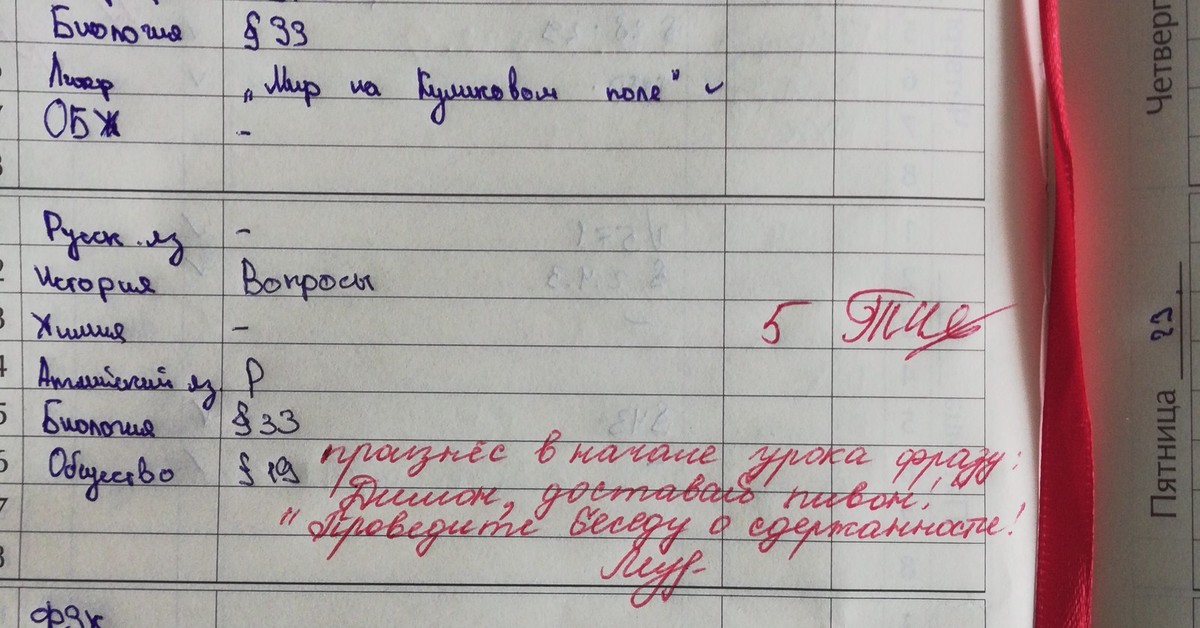 Биология § 33
Литер „Мир на Куликовом поле"
ОБЖ -
Русск. яз -
История Вопросы
Химия - 5
Английский яз Р
Биология § 33
Общество § 19
произнёс в начале урока фразу:
"Димон, доставай пивон!"
Проведите беседу о сдержанности!
физк
Четверг
Пятница 23